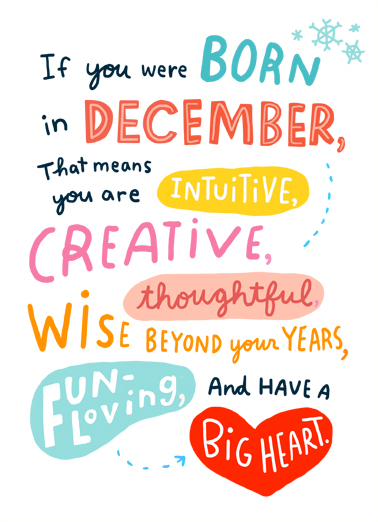 If you were BORN
in DECEMBER,
That means
you are INTUITIVE,
CREATIVE,
thoughtful,
WISE BEYOND your YEARS,
FUN-
LOVING, And HAVE A
BIG HEART.